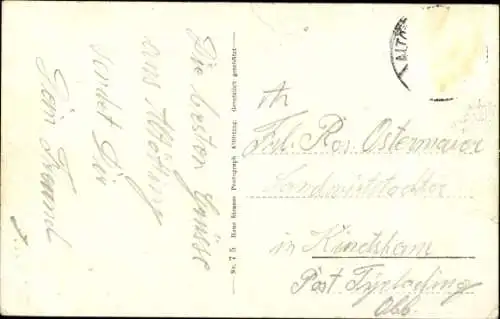 Die besten Grüsse
aus Altötting
sendet Dir
Dein Freund
Nr. 75 Hans Strauss Photograph Altötting. Gesetzlich geschützt
ALTÖ
An
Frl. Ros. Ostermaier
Landwirtstochter
in
Post Tyrlaching
Obb.